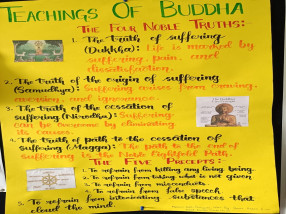 TEACHINGS OF BUDDHA
THE FOUR NOBLE TRUTHS:
1. The truth of suffering
(Dukkha): Life is marked by
suffering, pain, and
dissatisfaction.
2. The truth of the origin of suffering
(Samudhya): Suffering arises from craving,
aversion, and ignorance.
3. The truth of the cessation of
suffering (Nirodha): Suffering
can be overcome by eliminating
its causes.
4. The truth of path to the cessation of
Suffering (Magga): The path to the end of
suffering is the Noble Eightfold Path.
THE FIVE PRECEPTS:
1. To refrain from killing any living being.
2. To refrain from taking what is not given
3. To refrain from misconducts.
4. To refrain from false speech
5. To refrain from intoxicating substances that
cloud the mind.